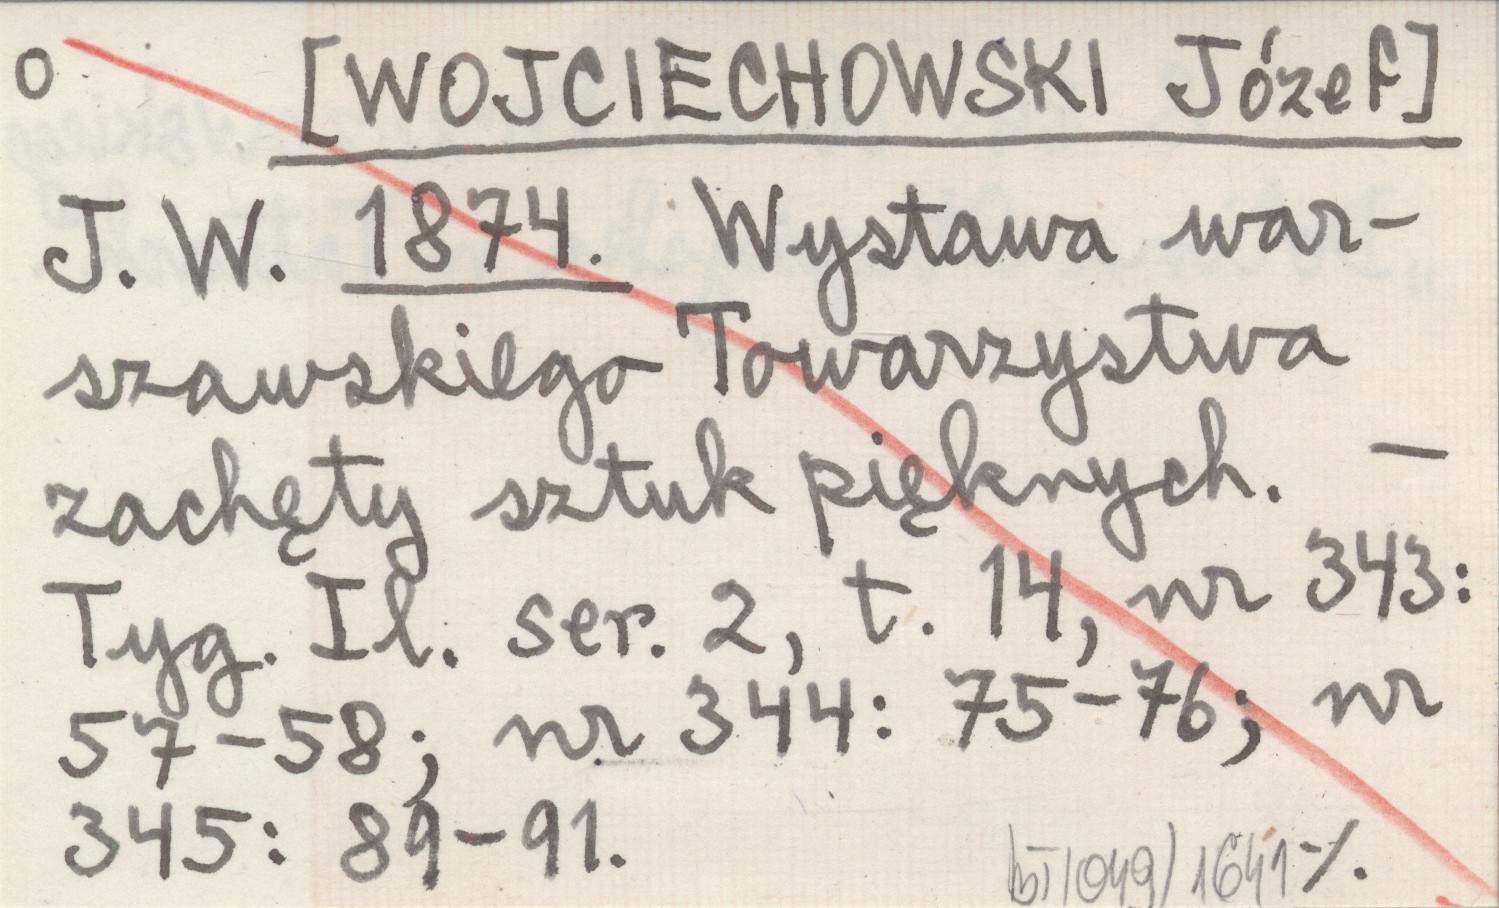 o [WOJCIECHOWSKI Józef]
J. W. 1874. Wystawa war-
szawskiego Towarzystwa
zachęty sztuk pięknych. —
Tyg. Il. ser. 2, t. 14, nr 343:
57-58; nr 344: 75-76; nr
345: 89-91.
1641 ·/.